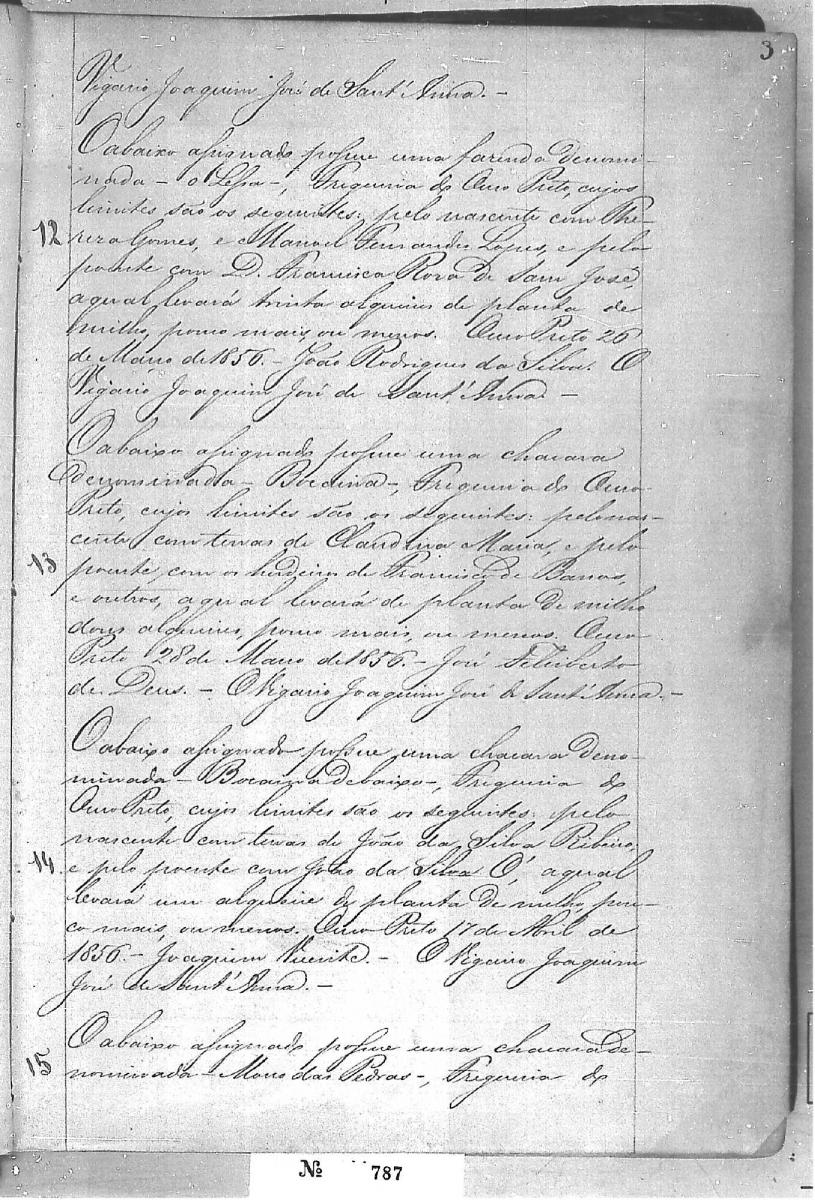 3
Vigario Joaquim José de Sant'Anna. -
O abaixo assignado possue uma fazenda denomi-
nada - o Lessa -, Freguezia do Ouro Preto, cujos
limites são os seguintes: pelo nascente com The-
12
reza Gomes, e Manoel Fernandes Lopes, e pelo
poente com D. Francisca Roza de Sam José,
a qual levará trinta alqueires de planta de
milho, pouco mais, ou menos. Ouro Preto 26
de Março de 1856. - João Rodrigues da Silva. O
Vigario Joaquim José de Sant'Anna. -
O abaixo assignado possue uma chacara
denominada - Bocaina -, Freguezia do Ouro
Preto, cujos limites são os seguintes: pelo nas-
cente com terras de Claudina Maria, e pelo
13
poente, com os herdeiros de Francisco de Barros,
e outros, a qual levará de planta de milho
dous alqueires, pouco mais, ou menos. Ouro
Preto 28 de Março de 1856. - José Feliciberto
de Deus. - O Vigario Joaquim José de Sant'Anna. -
O abaixo assignado possue uma chacara deno-
minada - Bocaina debaixo -, Freguezia do
Ouro Preto, cujos limites são os seguintes: pelo
nascente com terras de João da Silva Ribeiro,
14
e pelo poente com João da Silva Ó, a qual
levará um alqueire de planta de milho, pou-
co mais, ou menos. Ouro Preto 17 de Abril de
1856. - Joaquim Vicente. - O Vigario Joaquim
José de Sant'Anna. -
O abaixo assignado possue uma chacara de-
15
nominada - Morro das Pedras -, Freguezia do
Nº 787